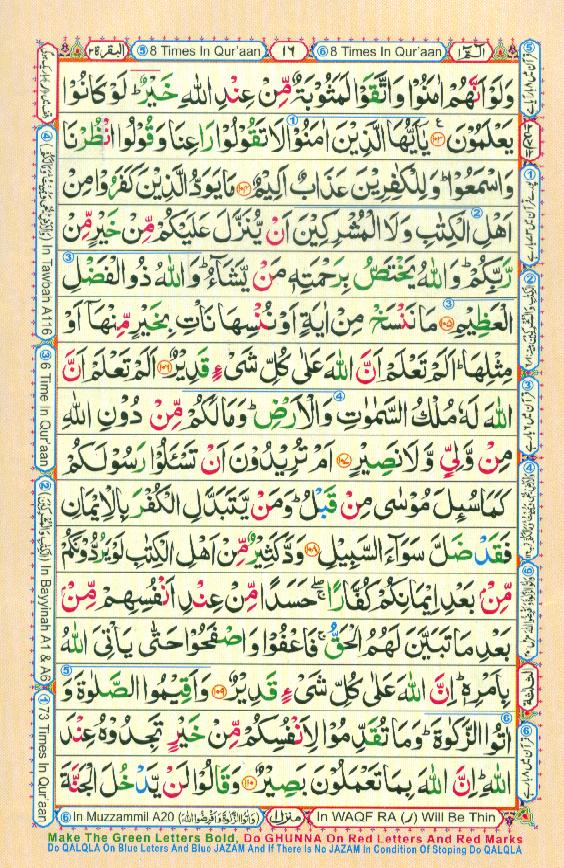 البقرة ٢
⑤ 8 Times In Qur'aan
١٦
⑥ 8 Times In Qur'aan
الٓمّٓ ١
وَلَوْ اَنَّهُمْ اٰمَنُوْا وَاتَّقَوْا لَمَثُوْبَةٌ مِّنْ عِنْدِ اللّٰهِ خَيْرٌ ؕ لَوْ كَانُوْا
يَعْلَمُوْنَ ﴿۱۰۳﴾ يٰۤاَيُّهَا الَّذِيْنَ اٰمَنُوْا لَا تَقُوْلُوْا رَاعِنَا وَقُوْلُوا انْظُرْنَا
وَاسْمَعُوْا ؕ وَلِلْكٰفِرِيْنَ عَذَابٌ اَلِيْمٌ ﴿۱۰۴﴾ مَا يَوَدُّ الَّذِيْنَ كَفَرُوْا مِنْ
اَهْلِ الْكِتٰبِ وَلَا الْمُشْرِكِيْنَ اَنْ يُّنَزَّلَ عَلَيْكُمْ مِّنْ خَيْرٍ مِّنْ
رَّبِّكُمْ ؕ وَاللّٰهُ يَخْتَصُّ بِرَحْمَتِهٖ مَنْ يَّشَآءُ ؕ وَاللّٰهُ ذُو الْفَضْلِ
الْعَظِيْمِ ﴿۱۰۵﴾ مَا نَنْسَخْ مِنْ اٰيَةٍ اَوْ نُنْسِهَا نَاْتِ بِخَيْرٍ مِّنْهَاۤ اَوْ
مِثْلِهَا ؕ اَلَمْ تَعْلَمْ اَنَّ اللّٰهَ عَلٰى كُلِّ شَىْءٍ قَدِيْرٌ ﴿۱۰۶﴾ اَلَمْ تَعْلَمْ اَنَّ
اللّٰهَ لَهٗ مُلْكُ السَّمٰوٰتِ وَالْاَرْضِ ؕ وَمَا لَكُمْ مِّنْ دُوْنِ اللّٰهِ
مِنْ وَّلِيٍّ وَّلَا نَصِيْرٍ ﴿۱۰۷﴾ اَمْ تُرِيْدُوْنَ اَنْ تَسْـَٔلُوْا رَسُوْلَكُمْ
كَمَا سُئِلَ مُوْسٰى مِنْ قَبْلُ ؕ وَمَنْ يَّتَبَدَّلِ الْكُفْرَ بِالْاِيْمَانِ
فَقَدْ ضَلَّ سَوَآءَ السَّبِيْلِ ﴿۱۰۸﴾ وَدَّ كَثِيْرٌ مِّنْ اَهْلِ الْكِتٰبِ لَوْ يَرُدُّوْنَكُمْ
مِّنْۢ بَعْدِ اِيْمَانِكُمْ كُفَّارًا ۖۚ حَسَدًا مِّنْ عِنْدِ اَنْفُسِهِمْ مِّنْۢ
بَعْدِ مَا تَبَيَّنَ لَهُمُ الْحَقُّ ۚ فَاعْفُوْا وَاصْفَحُوْا حَتّٰى يَاْتِىَ اللّٰهُ
بِاَمْرِهٖ ؕ اِنَّ اللّٰهَ عَلٰى كُلِّ شَىْءٍ قَدِيْرٌ ﴿۱۰۹﴾ وَاَقِيْمُوا الصَّلٰوةَ وَ
اٰتُوا الزَّكٰوةَ ؕ وَمَا تُقَدِّمُوْا لِاَنْفُسِكُمْ مِّنْ خَيْرٍ تَجِدُوْهُ عِنْدَ
اللّٰهِ ؕ اِنَّ اللّٰهَ بِمَا تَعْمَلُوْنَ بَصِيْرٌ ﴿۱۱۰﴾ وَقَالُوْا لَنْ يَّدْخُلَ الْجَنَّةَ
④ In Tawban A116
③ 6 Time In Qur'aan
② In Bayyinah A1 & A6
① 73 Times In Qur'aan
⑥ In Muzzammil A20 (وَاٰتُوا الزَّكٰوةَ وَاَقْرِضُوا اللّٰهَ)
منزل ١
In WAQF RA (ر) Will Be Thin
Make The Green Letters Bold, Do GHUNNA On Red Letters And Red Marks
Do QALQLA On Blue Letters And Blue JAZAM And If There Is No JAZAM In Condition Of Stoping Do QALQLA